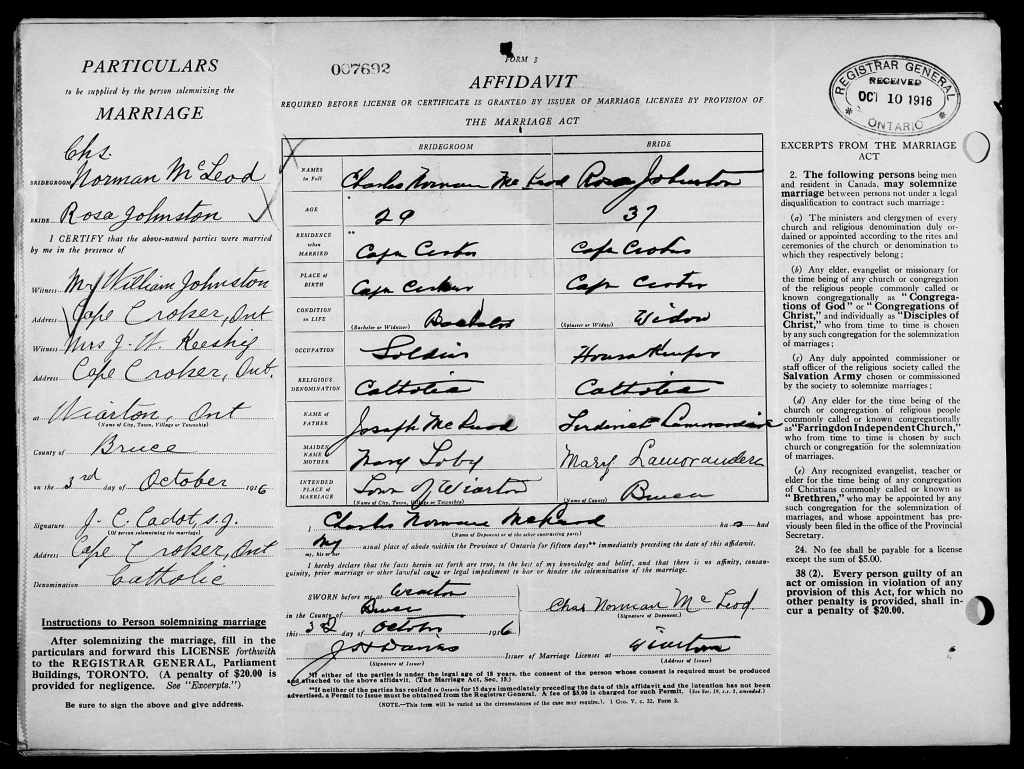 PARTICULARS
to be supplied by the person solemnizing the
MARRIAGE
Chs.
BRIDEGROOM Norman McLeod
BRIDE Rosa Johnston
I CERTIFY that the above-named parties were married
by me in the presence of
Witness Mr William Johnston
Address Cape Croker, Ont
Witness Mrs J. W. Keeshig
Address Cape Croker, Ont.
at Wiarton, Ont
(Name of City, Town, Village or Township)
County of Bruce
on the 3rd day of October 1916
Signature J. C. Cadot, s.j.
(Of person solemnizing the marriage)
Address Cape Croker, Ont
Denomination Catholic
Instructions to Person solemnizing marriage
After solemnizing the marriage, fill in the
particulars and forward this LICENSE forthwith
to the REGISTRAR GENERAL, Parliament
Buildings, TORONTO. (A penalty of $20.00 is
provided for negligence. See "Excerpts.")
Be sure to sign the above and give address.
007692
FORM 3
AFFIDAVIT
REQUIRED BEFORE LICENSE OR CERTIFICATE IS GRANTED BY ISSUER OF MARRIAGE LICENSES BY PROVISION OF
THE MARRIAGE ACT
BRIDEGROOM BRIDE
NAMES in Full Charles Norman McLeod Rosa Johnston
AGE 29 37
RESIDENCE when MARRIED ** Cape Croker Cape Croker
PLACE of BIRTH Cape Croker Cape Croker
CONDITION in LIFE (Bachelor or Widower) Bachelor (Spinster or Widow) Widow
OCCUPATION Soldier Housekeeper
RELIGIOUS DENOMINATION Catholic Catholic
NAME of FATHER Joseph McLeod
MAIDEN NAME of MOTHER Mary Mary
INTENDED PLACE of MARRIAGE Town of Wiarton Bruce
(Name of City, Town, Village or Township) (Name of County)
I Charles Norman McLeod ha s had
(Name of Deponent or of the other contracting party)
my usual place of abode within the Province of Ontario for fifteen days** immediately preceding the date of this affidavit.
my, his or her
I hereby declare that the facts herein set forth are true, to the best of my knowledge and belief, and that there is no affinity, consan-
guinity, prior marriage or other lawful cause or legal impediment to bar or hinder the solemnization of the marriage.
SWORN before me at Wiarton
in the County of Bruce
this 3d day of October 1916
Chas Norman McLeod
(Signature of Deponent)
J H Davies Issuer of Marriage Licenses at Wiarton
(Signature of Issuer) (Address of Issuer)
*If either of the parties is under the legal age of 18 years, the consent of the person whose consent is required must be produced
and attached to the above affidavit. (The Marriage Act, Sec. 15.)
**If neither of the parties has resided in Ontario for 15 days immediately preceding the date of this affidavit and the intention has not been
advertised, a Permit to Issue must be obtained from the Registrar General. A fee of $5.00 is charged for such Permit. (See Sec. 19, s.s. 2, amended.)
(NOTE.—This form will be varied as the circumstances of the case may require.) 1 Geo. V. c. 32, Form 3.
REGISTRAR GENERAL
RECEIVED
OCT 10 1916
ONTARIO
EXCERPTS FROM THE MARRIAGE
ACT
2. The following persons being men
and resident in Canada, may solemnize
marriage between persons not under a legal
disqualification to contract such marriage:
(a) The ministers and clergymen of every
church and religious denomination duly or-
dained or appointed according to the rites and
ceremonies of the church or denomination to
which they respectively belong;
(b) Any elder, evangelist or missionary for
the time being of any church or congregation
of the religious people commonly called or
known congregationally as "Congrega-
tions of God" or "Congregations of
Christ," and individually as "Disciples of
Christ," who from time to time is chosen
by any such congregation for the solemnization
of marriages;
(c) Any duly appointed commissioner or
staff officer of the religious society called the
Salvation Army chosen or commissioned
by the society to solemnize marriages;
(d) Any elder for the time being of the
church or congregation of religious people
commonly called or known congregationally
as "Farringdon Independent Church,"
who from time to time is chosen by such
church or congregation for the solemnization
of marriages.
(e) Any recognized evangelist, teacher or
elder for the time being of any congregation
of Christians commonly called or known as
"Brethren," who may be appointed by any
such congregation for the solemnization of
marriages, and whose appointment has pre-
viously been filed in the office of the Provincial
Secretary.
24. No fee shall be payable for a license
except the sum of $5.00.
38 (2). Every person guilty of an
act or omission in violation of any
provision of this Act, for which no
other penalty is provided, shall in-
cur a penalty of $20.00.